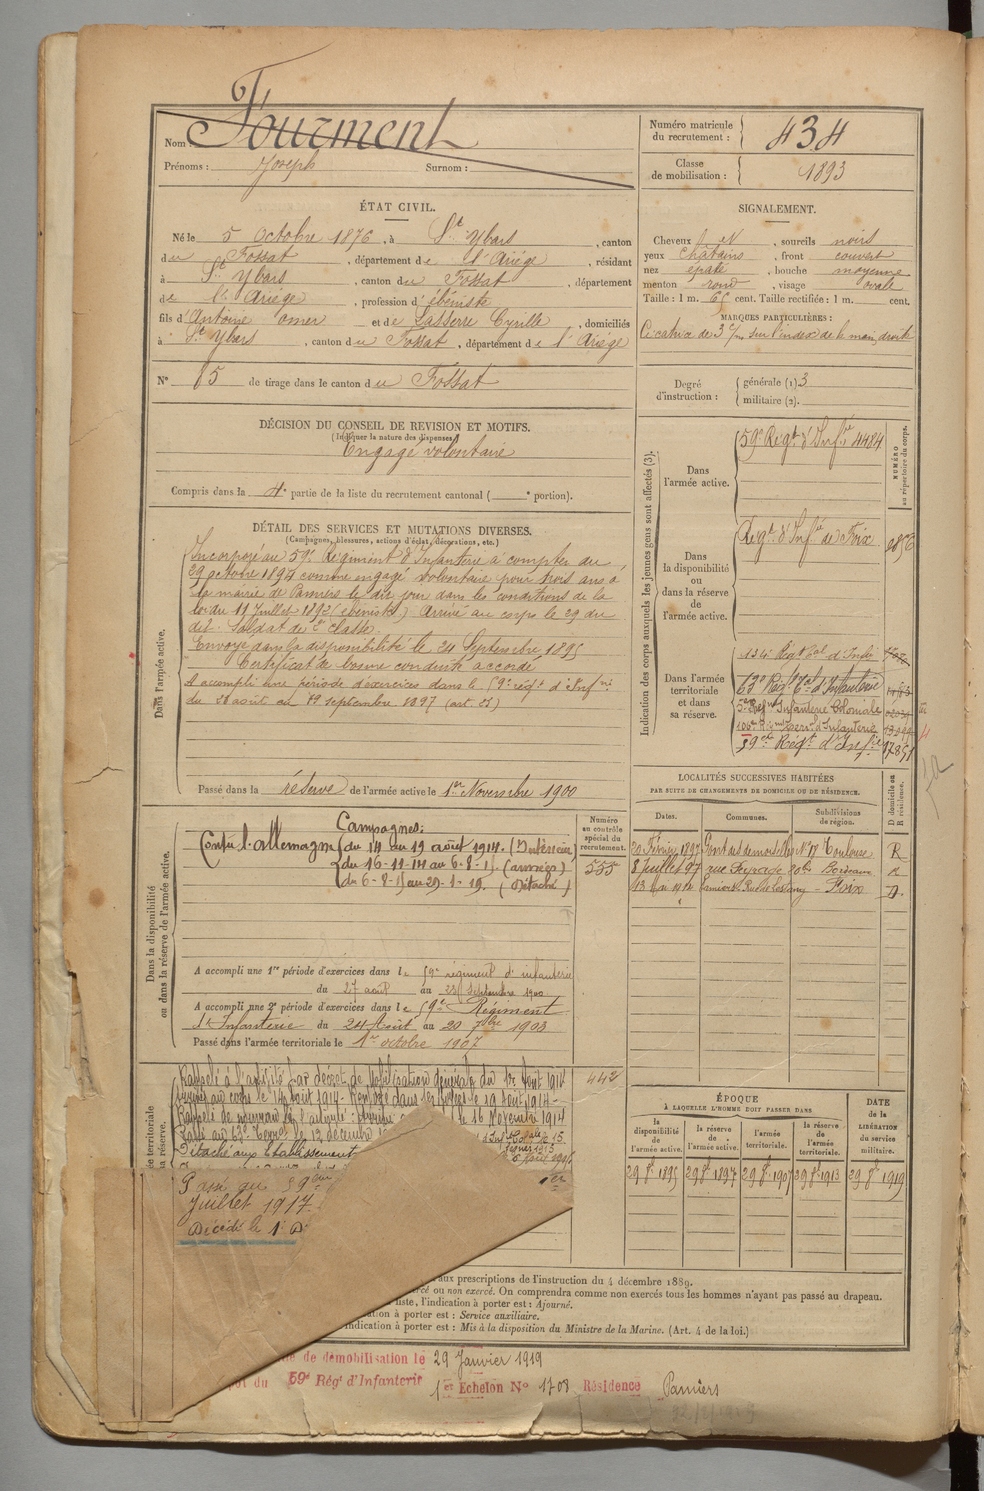 Nom : Fourment
Prénoms : Joseph Surnom :
Numéro matricule du recrutement : 434
Classe de mobilisation : 1893
ÉTAT CIVIL.
Né le 5 Octobre 1876, à St Ybars, canton
du Fossat, département de l'Ariège, résidant
à St Ybars, canton du Fossat, département
de l'Ariège, profession d'ébéniste
fils d'Antoine Omer et de Lasserre Cyrille, domiciliés
à St Ybars, canton du Fossat, département de l'Ariège
N° 15 de tirage dans le canton du Fossat
SIGNALEMENT.
Cheveux , sourcils noirs
yeux châtains, front couvert
nez épaté, bouche moyenne
menton rond, visage ovale
Taille : 1 m. 65 cent. Taille rectifiée : 1 m. cent.
MARQUES PARTICULIÈRES :
Cicatrice de 3 c/m sur l'index de la main droite
Degré d'instruction : générale (1) 3
militaire (2).
DÉCISION DU CONSEIL DE REVISION ET MOTIFS.
(Indiquer la nature des dispenses)
Engagé volontaire
Compris dans la 4e partie de la liste du recrutement cantonal ( e portion).
DÉTAIL DES SERVICES ET MUTATIONS DIVERSES.
(Campagnes, blessures, actions d'éclat, décorations, etc.)
Dans l'armée active.
Incorporé au 59e Régiment d'Infanterie à compter du
29 octobre 1894 comme engagé volontaire pour trois ans à
la mairie de Pamiers le dit jour dans les conditions de la
loi du 11 Juillet 1892 (ébéniste) Arrivé au corps le 29 du
dit. Soldat de 2e classe.
Envoyé dans la disponibilité le 24 Septembre 1895
Certificat de bonne conduite accordé
A accompli une période d'exercices dans le 59e régt d'Infrie
du 23 août au 19 septembre 1897 (art. 23)
Passé dans la réserve de l'armée active le 1er Novembre 1900
Indication des corps auxquels les jeunes gens sont affectés (3).
NUMÉRO au répertoire du corps.
Dans l'armée active.
59e Régt d'Infrie 4484
Dans la disponibilité ou dans la réserve de l'armée active.
Régt d'Infrie de Foix
Dans l'armée territoriale et dans sa réserve.
134e Régt tal d'Infie
63e Régt tal d'Infanterie
5e Régt Infanterie Coloniale
106e Régt réserve d'Infanterie
59e Régt d'Infie 17851
Dans la disponibilité ou dans la réserve de l'armée active.
Campagnes:
Contre l'allemagne du 14 au 19 août 1914. (Intérieur)
du 16-11-14 au 6-8-15 (armées)
du 6-8-15 au 29-1-19. (Détaché)
Numéro au contrôle spécial du recrutement.
555
A accompli une 1re période d'exercices dans le 59e régiment d'infanterie
du 27 août au 23 Septembre 1900
A accompli une 2e période d'exercices dans le 59e Régiment
d'Infanterie du 24 Août au 20 7bre 1903
Passé dans l'armée territoriale le 1er octobre 1907
LOCALITÉS SUCCESSIVES HABITÉES
PAR SUITE DE CHANGEMENTS DE DOMICILE OU DE RÉSIDENCE.
Dates. Communes. Subdivisions de région. D domicile ou R résidence.
20 Février 1897 Pont des demoiselles N° 17 Toulouse R
8 Juillet 97 rue Bordeaux R
Pamiers Foix D.
Rappelé à l'activité par décret de Mobilisation générale du 1er Août 1914
Arrivé au corps le 14 août 1914 - Renvoyé dans ses foyers le 19 Août 1914 -
Rappelé de nouveau à l'activité. Arrivé le 16 Novembre 1914
Passé au 63e Terral le 12 décembre
Détaché aux Etablissements
442
Passé au 59e
Juillet 1917.
Décédé le 1
ÉPOQUE
À LAQUELLE L'HOMME DOIT PASSER DANS
la disponibilité de l'armée active. la réserve de l'armée active. l'armée territoriale. la réserve de l'armée territoriale.
DATE de la LIBÉRATION du service militaire.
29 8e 1895 29 8e 1897 29 8e 1907 29 8e 1913 29 8e 1919
aux prescriptions de l'instruction du 4 décembre 1889.
ou non exercé. On comprendra comme non exercés tous les hommes n'ayant pas passé au drapeau.
liste, l'indication à porter est : Ajourné.
à porter est : Service auxiliaire.
indication à porter est : Mis à la disposition du Ministre de la Marine. (Art. 4 de la loi.)
de démobilisation le 29 Janvier 1919
du 59e Régt d'Infanterie 1er Echelon N° 1708 Résidence Pamiers